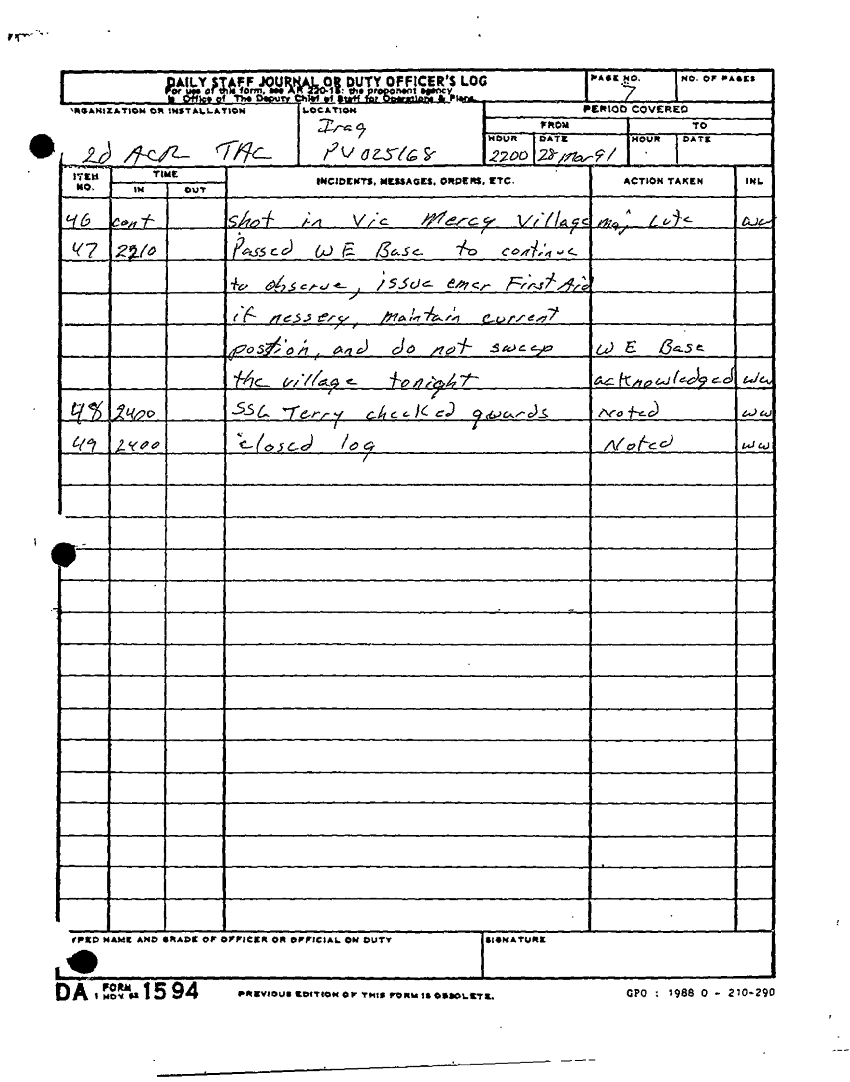 DAILY STAFF JOURNAL OR DUTY OFFICER'S LOG
For use of this form, see AR 220-15: the proponent agency
is Office of The Deputy Chief of Staff for Operations & Plans.
PAGE NO.
7
NO. OF PAGES
RGANIZATION OR INSTALLATION
2d ACR TAC
LOCATION
Iraq
PV 025168
PERIOD COVERED
FROM TO
HOUR DATE HOUR DATE
2200 28 Mar 91
ITEM NO. TIME IN OUT INCIDENTS, MESSAGES, ORDERS, ETC. ACTION TAKEN INL
46 cont shot in Vic Mercy Village maj Lute ww
47 2210 Passed WE Base to continue
to observe, issue emer First Aid
if nessery, maintain current
postion, and do not sweep WE Base
the village tonight acknowledged ww
48 2400 SSG Terry checked guards Noted ww
49 2400 closed log Noted ww
YPED NAME AND GRADE OF OFFICER OR OFFICIAL ON DUTY SIGNATURE
DA FORM 1 NOV 62 1594 PREVIOUS EDITION OF THIS FORM IS OBSOLETE. GPO : 1988 O - 210-290